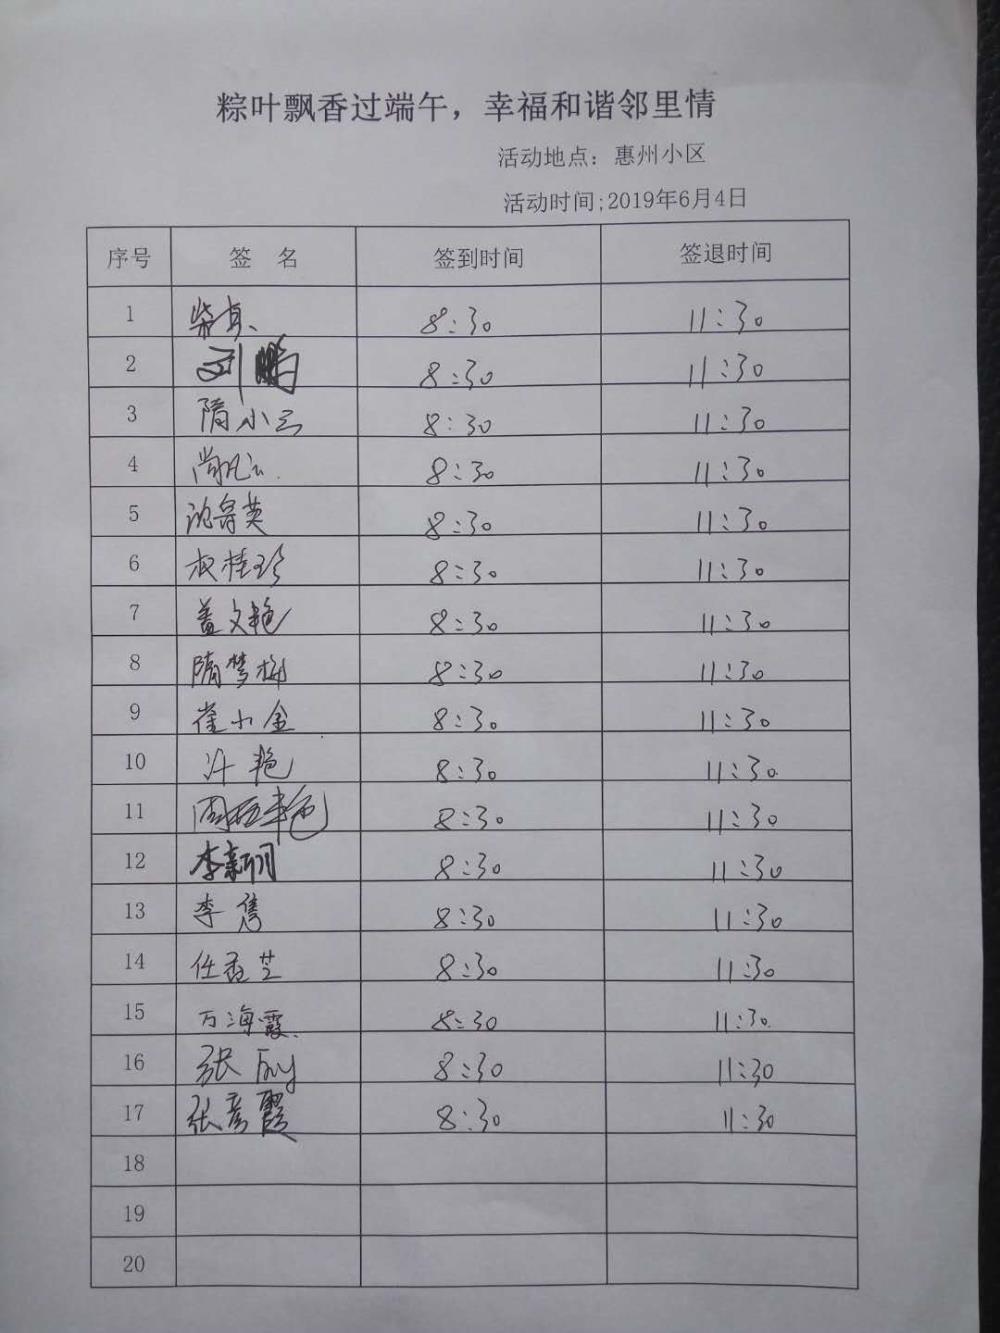 粽叶飘香过端午，幸福和谐邻里情
活动地点：惠州小区
活动时间;2019年6月4日
序号 签 名 签到时间 签退时间
1 柴真 8:30 11:30
2 刘鹏 8:30 11:30
3 隋小云 8:30 11:30
4 8:30 11:30
5 英 8:30 11:30
6 权桂珍 8:30 11:30
7 盖文艳 8:30 11:30
8 隋梦柳 8:30 11:30
9 崔小金 8:30 11:30
10 许艳 8:30 11:30
11 周 艳 8:30 11:30
12 李新羽 8:30 11:30
13 李隽 8:30 11:30
14 任 芝 8:30 11:30
15 万海霞 8:30 11:30
16 张 8:30 11:30
17 张彦霞 8:30 11:30
18
19
20